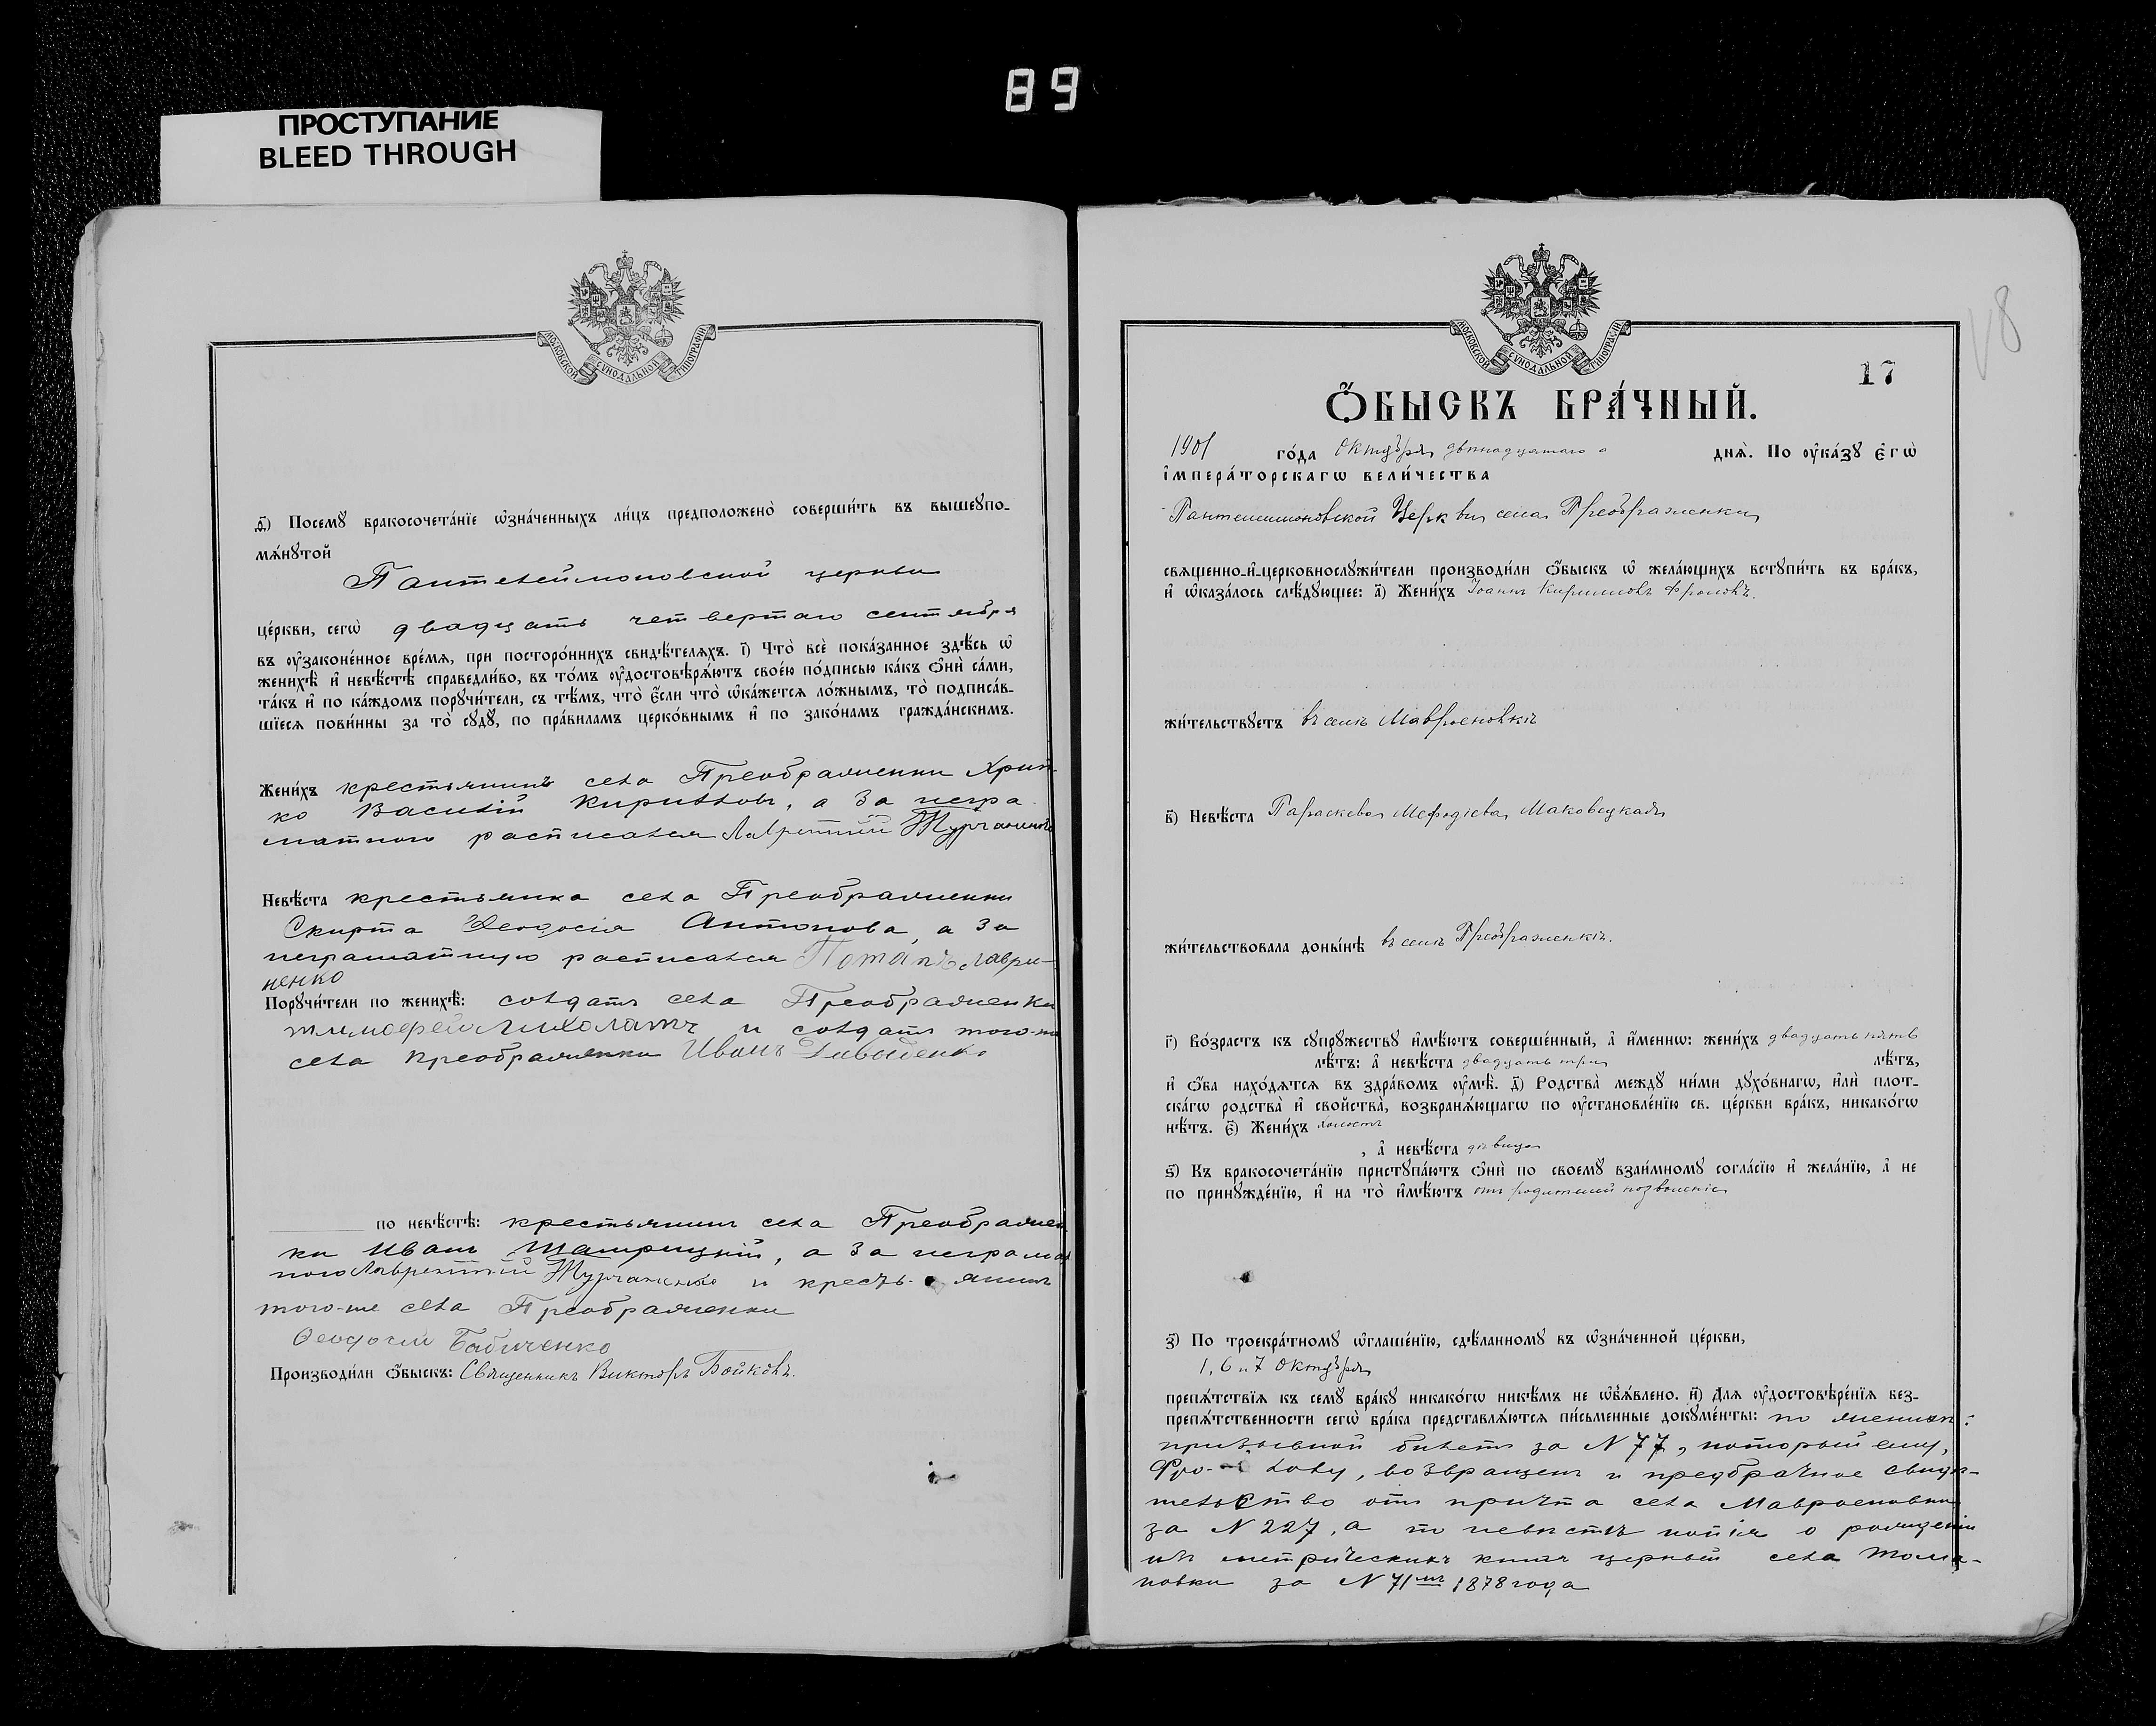 89
ПРОСТУПАНИЕ
BLEED THROUGH
МОСКОВСКОЙ СУНОДАЛЬНОЙ ТИПОГРАФІИ
д҃) Посемꙋ̀ бракосочета́нїе ѡ҆зна́ченныхъ ли́цъ предположено̀ соверши́ть въ вышеꙋпо-
мѧ́нꙋтой
Пантелеймоновской церкви
це́ркви, сегѡ̀ двадцать четвертаго сентября
въ ᲂу҆законе́нное вре́мѧ, при посторо́ннихъ свидѣ́телѧхъ. і҃) Что̀ всѐ пока́занное здѣ́сь ѡ҆
женихѣ̀ и҆ невѣ́стѣ справедли́во, въ то́мъ ᲂу҆достовѣрѧ́ютъ свое́ю по́дписью ка́къ ѻ҆нѝ са́ми,
та́къ и҆ по ка́ждомъ порꙋчи́тели, съ тѣ́мъ, что̀ є҆́сли что̀ ѡ҆ка́жетсѧ ло́жнымъ, то̀ подписа́в-
шїесѧ пови́нны за то̀ сꙋдꙋ̀, по пра́виламъ церко́внымъ и҆ по зако́намъ гражда́нскимъ.
Жени́хъ крестьянинъ села Преображенки Хрип-
ко Василій Кирилловъ, а за негра-
матнаго расписался Лаврентій Журчаненко
Невѣ́ста крестьянка села Преображенки
Скирта Ѳеодосія Антонова, а за
неграматную росписался Потапъ Лаври-
ненко
Порꙋчи́тели по женихѣ̀: солдатъ села Преображенки
тимофей лихолатъ и солдатъ того-же
села преображенки Иванъ
по невѣ́стѣ: крестьянинъ села Преображен
ки Иванъ, а за неграмат
ного Лаврентій Журчаненко и кресть- янинъ
того-же села Преображенки
Ѳеодосій Бабиченко
Производи́ли ѻ҆́быскъ: Священникъ Викторъ Бойковъ.
18
МОСКОВСКОЙ СУНОДАЛЬНОЙ ТИПОГРАФІИ
17
Ѻ҆́БЫСКЪ БРА́ЧНЫЙ.
1901 го́да Октября двѣнадцатаго днѧ̀. По ᲂу҆ка́зꙋ є҆гѡ̀
і҆мпера́торскагѡ вели́чества
Пантелеимоновской Церкви села Преображенки
свѧщенно-и҆-церковнослꙋжи́тели производи́ли ѻ҆́быскъ ѡ҆ жела́ющихъ встꙋпи́ть въ бра́къ,
и҆ ѡ҆каза́лось слѣ́дꙋющее: а҃) Жени́хъ Іоаннъ Кирилловъ Фроловъ.
жи́тельствꙋетъ въ селѣ Мавроеновкѣ
в҃) Невѣ́ста Параскева Меѳодіева Маковецкая
жи́тельствовала доны́нѣ въ селѣ Преображенкѣ.
г҃) Во́зрастъ къ сꙋпрꙋ́жествꙋ и҆мѣ́ютъ соверше́нный, а҆ и҆́меннѡ: жени́хъ двадцать пять
лѣ́тъ: а҆ невѣ́ста двадцать три лѣ́тъ,
и҆ ѻ҆́ба нахо́дѧтсѧ въ здра́вомъ ᲂу҆мѣ̀. д҃) Родства̀ междꙋ̀ ни́ми дꙋхо́внагѡ, и҆лѝ плот-
ска́гѡ родства̀ и҆ сво́йства̀, возбранѧ́ющагѡ по ᲂу҆становле́нїю св. це́ркви бра́къ, никако́гѡ
нѣ́тъ. є҃) Жени́хъ холостъ
, а҆ невѣ́ста дѣвица
ѕ҃) Къ бракосочета́нїю пристꙋпа́ютъ ѻ҆нѝ по своемꙋ̀ взаи́мномꙋ согла́сїю и҆ жела́нїю, а҆ не
по принꙋжде́нїю, и҆ на то̀ и҆мѣ́ютъ отъ родителей позволеніе
з҃) По троекра́тномꙋ ѡ҆глаше́нїю, сдѣ́ланномꙋ въ ѡ҆зна́ченной це́ркви,
1, 6 и 7 Октября
препѧ́тствїѧ къ семꙋ̀ бра́кꙋ никако́гѡ никѣ́мъ не ѡ҆б̾ѧ́влено. и҃) Длѧ ᲂу҆достовѣре́нїѧ без-
препѧ́тственности сегѡ̀ бра́ка представлѧ́ютсѧ пи́сьменные докꙋме́нты: по женихѣ:
призывной билетъ за N 77, который ему,
Фро- лову, возвращенъ и предбрачное свидѣ-
тельство отъ причта села Мавроеновки
за N 227, а по невѣстѣ копія о рожденіи
изъ метрическихъ книгъ церквей села Тома-
ковки за N 71мъ 1878 года